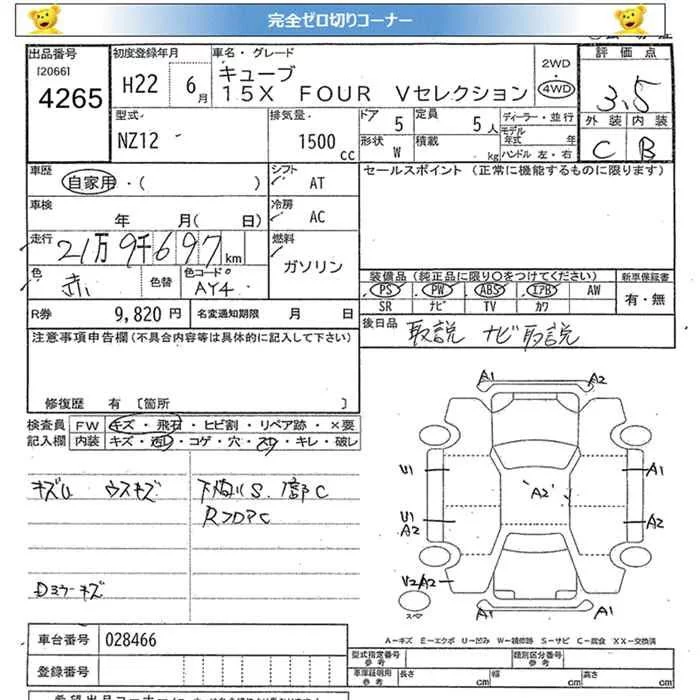 完全ゼロ切りコーナー
出品番号
[2066]
4265
初度登録年月
H22 6月
車名・グレード
キューブ
15X FOUR Vセレクション
2WD
・
4WD
評価点
3.5
外装 内装
C B
型式
NZ12
排気量
1500
cc
ドア 5
定員 5人
形状 W
積載 kg
ディーラー・並行
モデル年式 年
ハンドル 左・右
車歴
自家用・( )
シフト
AT
セールスポイント(正常に機能するものに限ります)
車検
年 月( 日)
冷房
AC
走行
21万9千697km
燃料
ガソリン
色
赤
色替
色コードNo
AY4
装備品(純正品に限り○をつけてください)
新車保証書
PS PW ABS エアB AW
SR ナビ TV カワ
有・無
R券 9,820円
名変通知期限 月 日
後日品 取説 ナビ取説
注意事項申告欄(不具合内容等は具体的に記入して下さい)
修復歴 有 [箇所 ]
検査員
記入欄
FW キズ・飛石・ヒビ割・リペア跡・×要
内装 キズ・汚れ・コゲ・穴・スレ・キレ・破レ
キズU ウスキズ
RフロアC
A1 A2
U1
A1
"A2"
U1
A2
A2
A1 A1
スペア
A-キズ E-エクボ U-凹み W-補修跡 S-サビ C-腐食 XX-交換済
車台番号 028466
登録番号
型式指定番号
参考
類別区分番号
参考
車庫証明用
参考
長さ cm
幅 cm
高さ cm